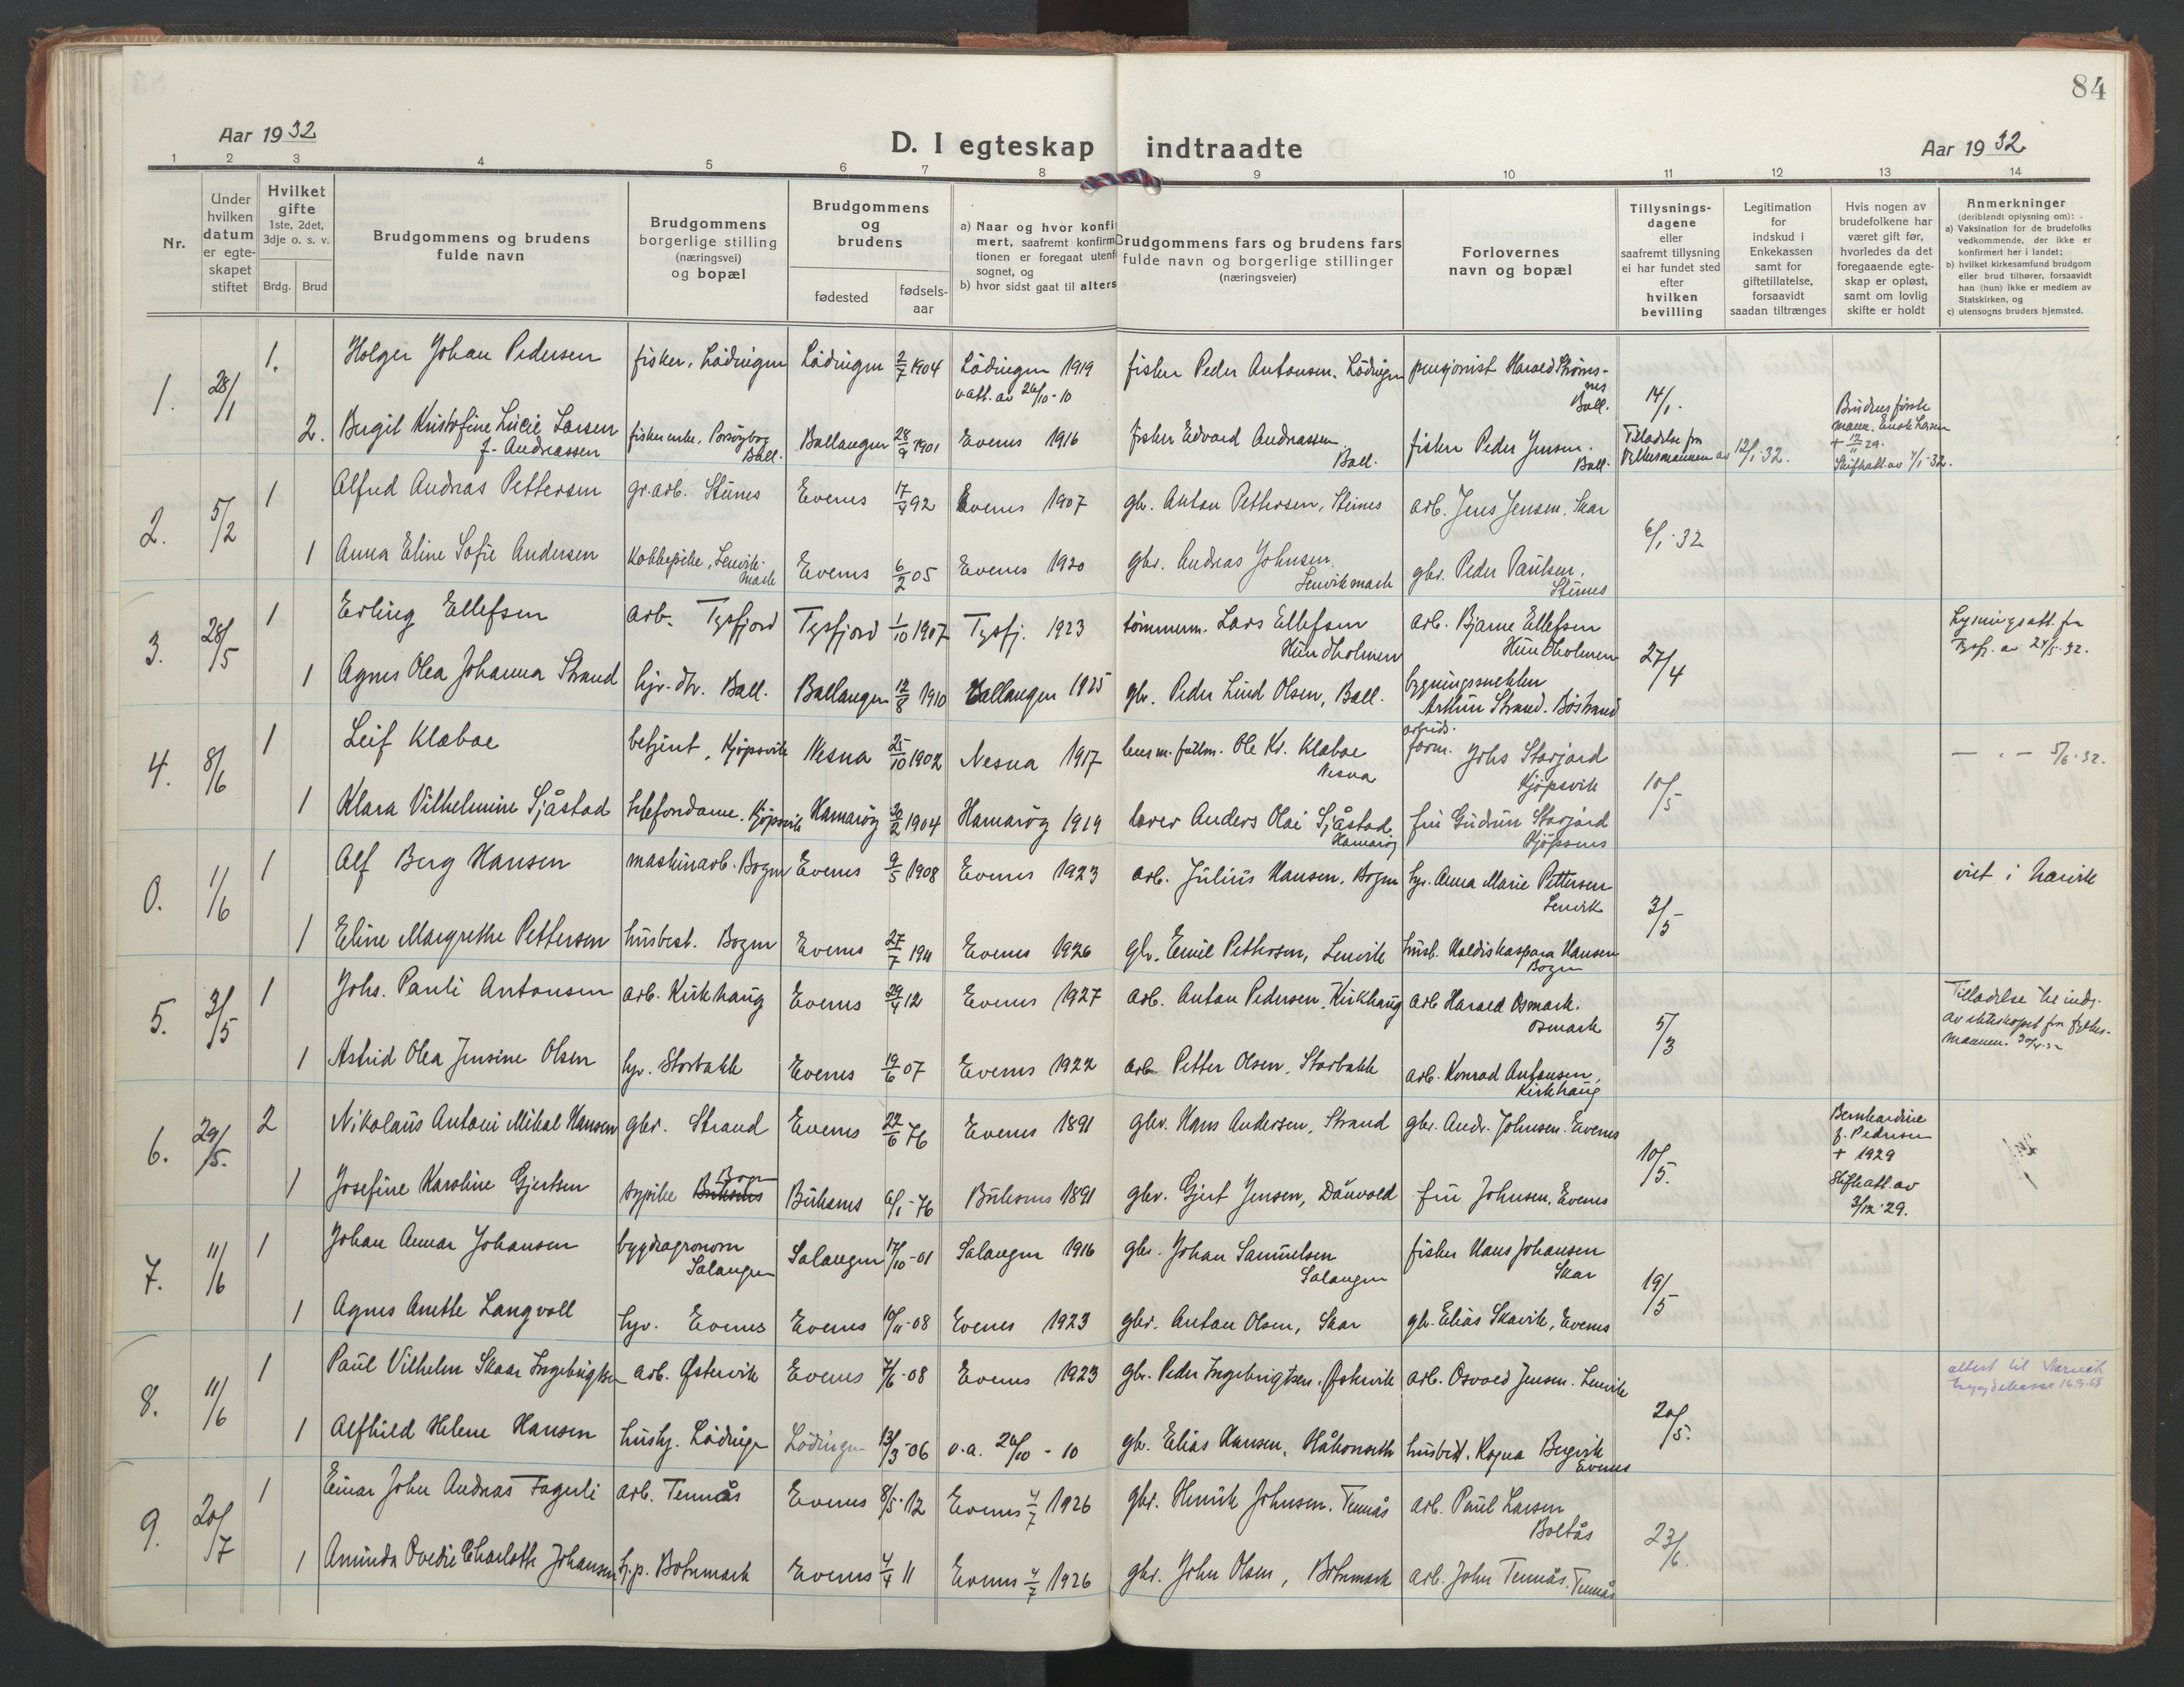 84
Aar 1932
D. I egteskap indtraadte
Aar 1932
1 2 3 4 5 6 7 8 9 10 11 12 13 14
Nr.
Under
hvilken
datum
er egte-
skapet
stiftet
Hvilket
gifte
1ste, 2det,
3dje o. s. v.
Brdg. Brud
Brudgommens og brudens
fulde navn
Brudgommens
borgerlige stilling
(næringsvei)
og bopæl
Brudgommens
og
brudens
fødested
fødsels-
aar
a) Naar og hvor konfi
mert, saafremt konfirm
tionen er foregaat utenf
sognet, og
b) hvor sidst gaat til alters
Brudgommens fars og brudens fars
fulde navn og borgerlige stillinger
(næringsveier)
Forlovernes
navn og bopæl
Tillysnings-
dagene
eller
saafremt tillysning
ei har fundet sted
efter
hvilken
bevilling
Legitimation
for
indskud i
Enkekassen
samt for
giftetillatelse,
forsaavidt
saadan tiltrænges
Hvis nogen av
brudefolkene har
været gift før,
hvorledes da det
foregaaende egte-
skap er opløst,
samt om lovlig
skifte er holdt
Anmerkninger
(deriblandt oplysning om):
a) Vaksination for de brudefolks
vedkommende, der ikke er
konfirmert her i landet;
b) hvilket kirkesamfund brudgom
eller brud tilhører, forsaavidt
han (hun) ikke er medlem av
Statskirken, og
c) utensogns bruders hjemsted.
1. 28/1 1. Holger Johan Pedersen fisker, Lødingen Lødingen 2/7 1904 Lødingen 1919 fisker Peder Antonsen. Lødingen pensjonist Harald Strømsnes
Ball.
v.att. av 26/10-10
14/1.
2. Bergit Kristofine Lucie Larsen fiskerenke, Ballangen 28/9 1901 Evenes 1916 fisker Edvard Andreassen fisker Peder Jensen.
f. Andreassen Ball. Ball. Ball.
Tilladelse fra
Fylkesmannen av 12/1-32.
Brudens første
mann. Enok Larsen
+ 12/11 29.
Skifteatt. av 7/1-32.
2. 5/2 1 Alfred Andreas Pettersen gr.arb. Stunes Evenes 17/4 92 Evenes 1907 gbr. Anton Pettersen, Stunes arb. Jens Jensen, Skar
6/1-32
1 Anna Eline Sofie Andersen Kokkepike, Lenvik-
mark Evenes 6/2 05 Evenes 1920 gbr. Andreas Johnsen
Lenvikmark gbr. Peder Paulsen,
Stunes
3. 28/5 1 Erling Ellefsen arb. Tysfjord Tysfjord 1/10 1907 Tysfj. 1923 tømmerm. Lars Ellefsen
Hundholmen arb. Bjarne Ellefsen
Hundholmen
27/4
Lysningsatt. fra
Tysfj. av 24/5-32.
1 Agnes Olea Johanna Strand hjv. dtr. Ball. Ballangen 12/8 1910 Ballangen 1925 gbr. Peder Lind Olsen, Ball. bygningssnekker
Arthur Strand. Bøstrand
4. 8/6 1 Leif Klæboe betjent, Kjøpsvik Nesna 25/10 1902 Nesna 1917 lensm. fullm. Ole Kr. Klæboe
Nesna arbeids-
form. Johs Storjord
Kjøpsvik
10/5
— " — 5/6-32.
1 Klara Vilhelmine Sjåstad telefondame. Kjøpsvik Hamarøy 1904 Hamarøy 1919 lærer Anders Olai Sjåstad
Hamarøy fru Gudrun Storjord
0. 1/6 1 Alf Berg Hansen maskinarb. Bogen Evenes 9/5 1908 Evenes 1923 arb. Julius Hansen, Bogen hj. Anna Marie Pettersen
Lenvik
3/5
viet i Narvik
1 Eline Margrethe Pettersen husbest. Bogen Evenes 27/7 1911 Evenes 1926 gbr. Emil Pettersen, Lenvik husb. Kaspara Hansen
Bogen
5. 3/5 1 Johs. Pauli Antonsen arb. Kirkhaug Evenes 29/4 12 Evenes 1927 arb. Anton Pedersen, Kirkhaug arb Harald Osmark.
Osmark
5/3
Tilladelse til indg.
av ekteskapet fra fylkes-
mannen. 30/4-32
1 Astrid Olea Jensine Olsen hj. Storbakk Evenes 19/6 07 Evenes 1922 arb. Petter Olsen, Storbakk arb. Konrad Antonsen,
Kirkhaug
6. 29/5. 2 Nikolaus Antoni Mikal Hansen gbr. Strand Evenes 22/6 76 Evenes 1891 gbr. Hans Andersen, Strand gbr. Andr. Johnsen. Evenes
10/5.
Bernhardine
f. Pedersen
+ 1929
Skifteatt. av
3/12-29.
1 Josefine Karoline Gjertsen sypike Bogen Buksnes 6/1-76 Buksnes 1891 gbr. Gjert Jensen, fru Johnsen, Evenes
7. 11/6 1 Johan Annar Johansen bygdeagronom
Salangen Salangen 17/10-01 Salangen 1916 gbr. Johan Samuelsen
Salangen fisker Hans Johansen
Skar
19/5
1 Agnes Anette Langvoll hjv. Evenes Evenes 10/11-08 Evenes 1923 gbr. Anton Olsen, Skar gbr. Elias Skavik, Evenes
8. 11/6 1 Paul Vilhelm Skaar Ingebrigtsen arb. Østervik Evenes 7/6-08 Evenes 1923 gbr. Peder Ingebrigtsen. Østervik arb. Osvald Jensen. Lenvik
20/5.
attest til Narvik
trygdekasse 16.9.68
1 Alfhild Helene Hansen hushj. Lødingen Lødingen 13/3-06 v.a. 26/10-10 gbr. Elias Hansen, husbest. Ragna Bergvik
Evenes
9. 20/7 1 Einar John Andreas Fagerli arb. Tennås Evenes 8/5-12 Evenes 4/7 1926 gbr. Henrik Johnsen. Tennås arb. Paul Larsen
Boltås
23/6.
1 Aminda Ovedie Charlotte Johansen hj.p. Botnmark Evenes 4/4 11 Evenes 4/7 1926 gbr. John Olsen, Botnmark arb. John Tennås. Tennås